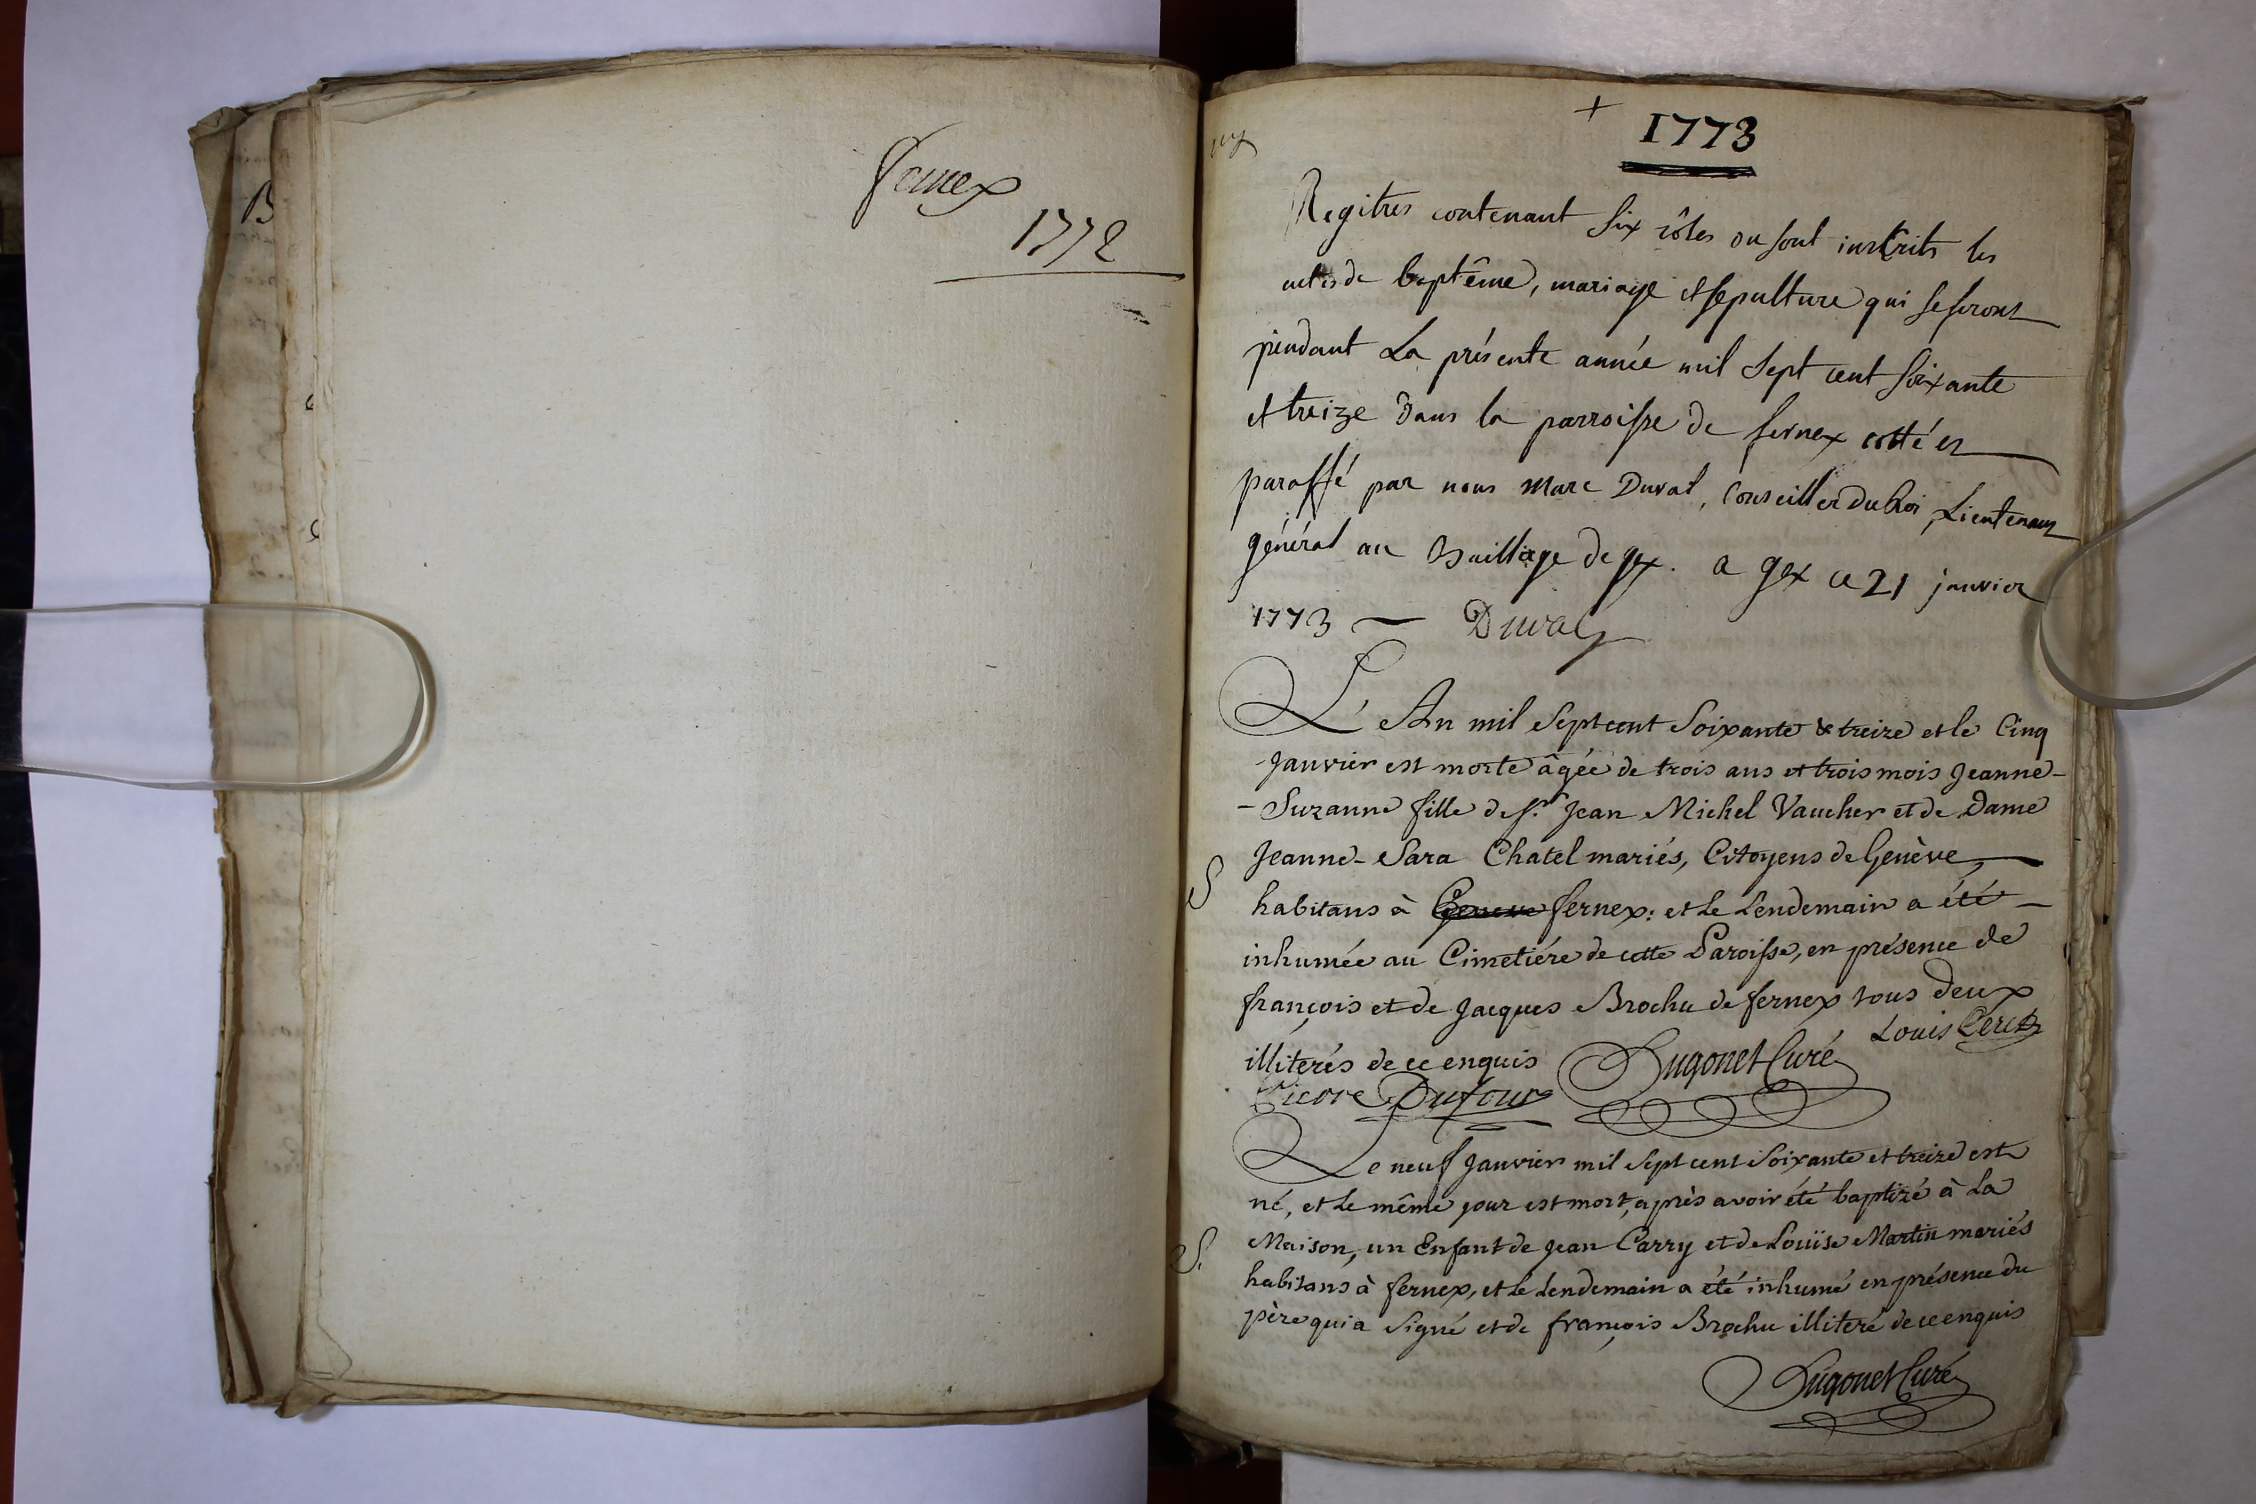 fernex
1772
B
+
1773
Regitres contenant six rôles ou sont inscrits les
actes de baptême, mariage et sepulture qui se feront
pendant La présente année mil sept cent soixante
et treize dans la parroisse de fernex cotté et
paraffé par nous Marc Duval, Conseiller du Roi, Lieutenant
général au Bailliage de gex. a gex ce 21 janvier
1773 — Duval
L'An mil Sept cent Soixante & treize et le Cinq
Janvier est morte âgée de trois ans et trois mois Jeanne-
-Suzanne fille de Sr. Jean Michel Vaucher et de Dame
Jeanne-Sara Chatel mariés, Citoyens de Genève,
S habitans à Geneve fernex: et Le Lendemain a été
inhumée au Cimetiére de cette Paroisse, en présence de
françois et de Jacques Brochu de fernex tous deux
Louis
illiterés de ce enquis Dugonet Curé
Pierre Dufour
Le neuf Janvier mil Sept cent Soixante et treize est
né, et Le même jour est mort, après avoir été baptizé à La
S. Maison, un Enfant de Jean Carry et de Louïse Martin mariés
habitans à fernex, et Le Lendemain a été inhumé en présence du
père qui a signé et de françois Brochu illiteré de ce enquis
Dugonet Curé